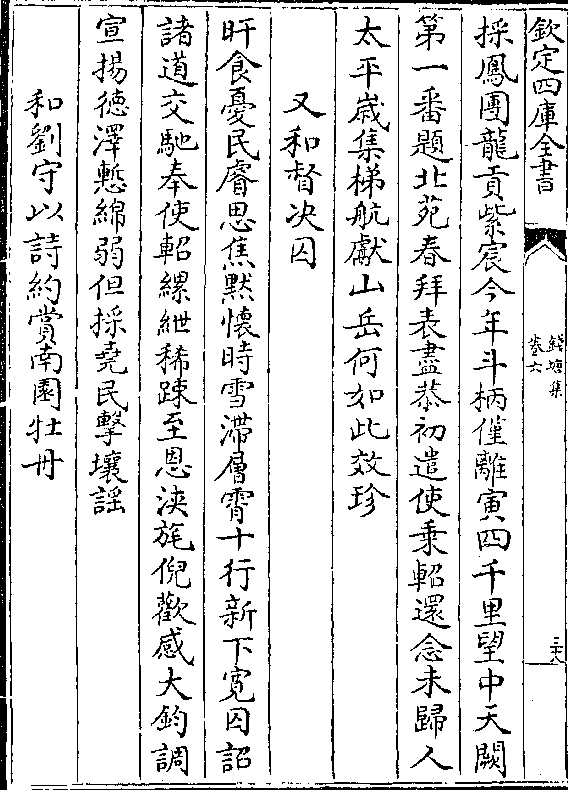 欽定四庫全書
錢塘集
卷六
三十八
採鳳團龍貢紫宸今年斗柄僅離寅四千里望中天闕
第一番題北苑春拜表盡恭初遣使乗軺還念未歸人
太平歳集梯航獻山岳何如此效珍
又和督决囚
旰食憂民睿思焦黙懷時雪滯層霄十行新下寛囚詔
諸道交馳奉使軺縲紲稀踈至恩浹旄倪歡感大鈞調
宣揚徳澤慙綿弱但採堯民擊壤謡
和劉守以詩約賞南園牡丹